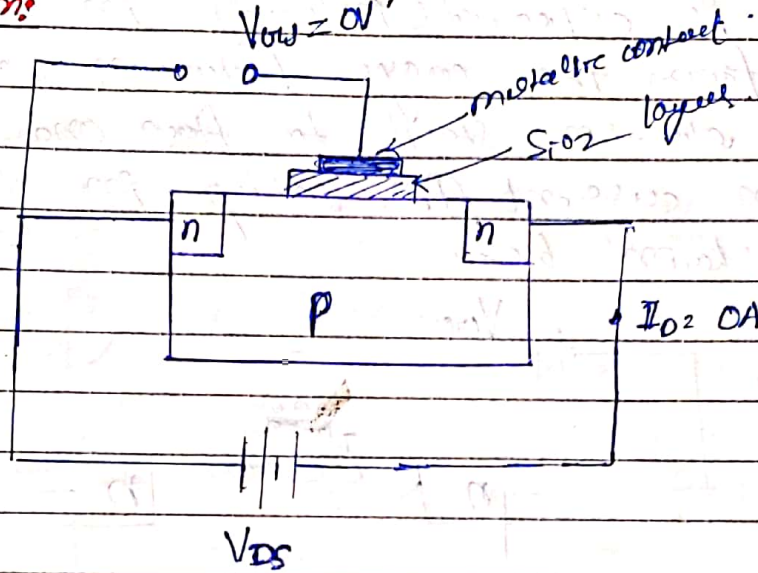 n:
VGW = 0V
metallic contact
SiO2 layer
n
n
P
ID = 0A
VDS